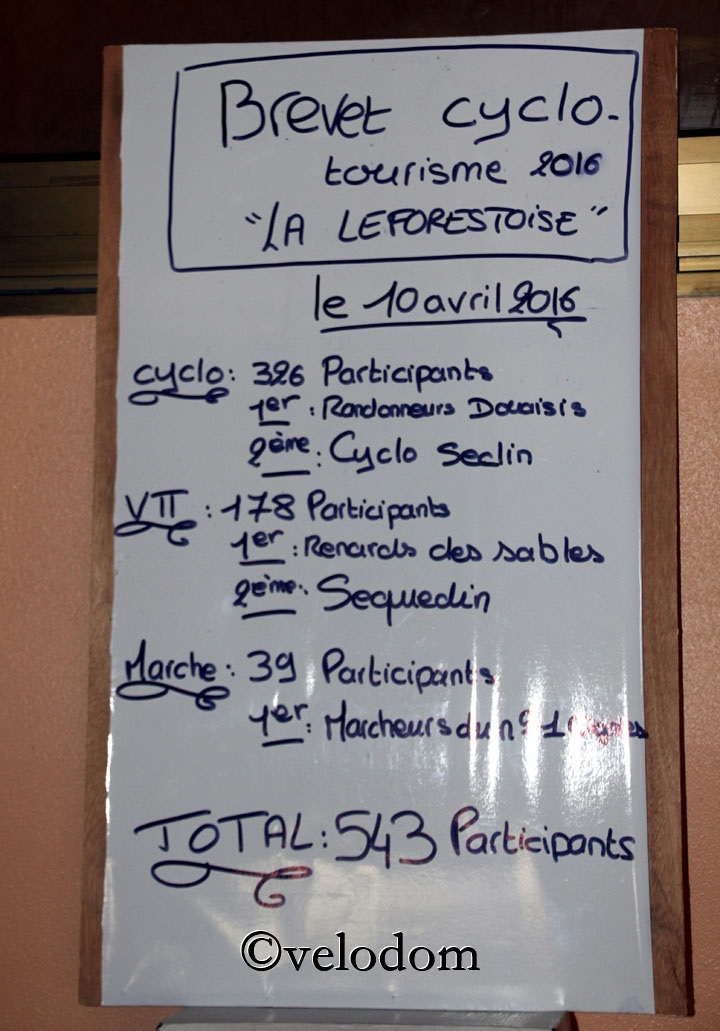 Brevet cyclo-
tourisme 2016
"LA LEFORESTOISE"
le 10 avril 2016
cyclo: 326 Participants
1er: Randonneurs Douaisis
2ème: Cyclo Seclin
VTT: 178 Participants
1er: Renards des sables
2ème: Sequedin
Marche: 39 Participants
1er: Marcheurs du n° 1
TOTAL: 543 Participants
©velodom